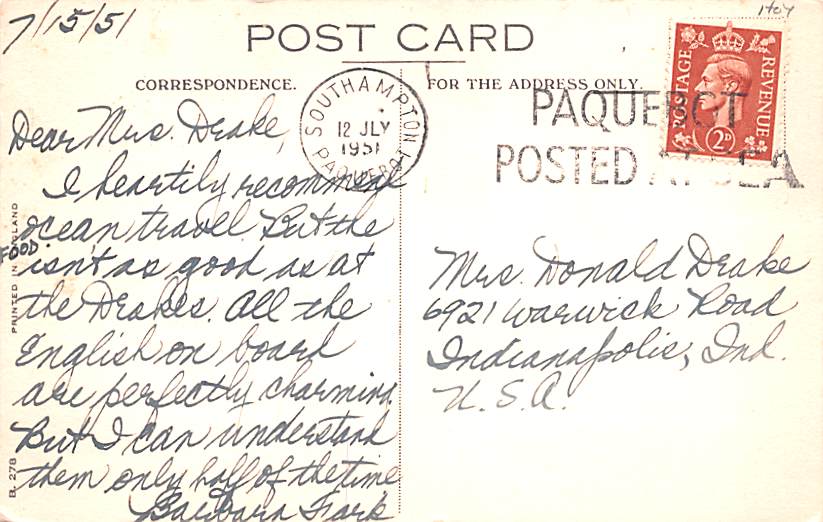 7/15/51
1404
POST CARD
CORRESPONDENCE.
FOR THE ADDRESS ONLY.
SOUTHAMPTON
12 JLY
1951
PAQUEBOT
PAQUEBOT
POSTED AT SEA
POSTAGE
REVENUE
2D
Dear Mrs. Drake,
I heartily recommend
ocean travel. But the
FOOD
isn't as good as at
the Drakes. All the
English on board
are perfectly charming.
But I can understand
them only half of the time
Barbara
Mrs. Donald Drake
6921 Warwick Road
Indianapolis, Ind.
U.S.A.
PRINTED IN ENGLAND
B. 278